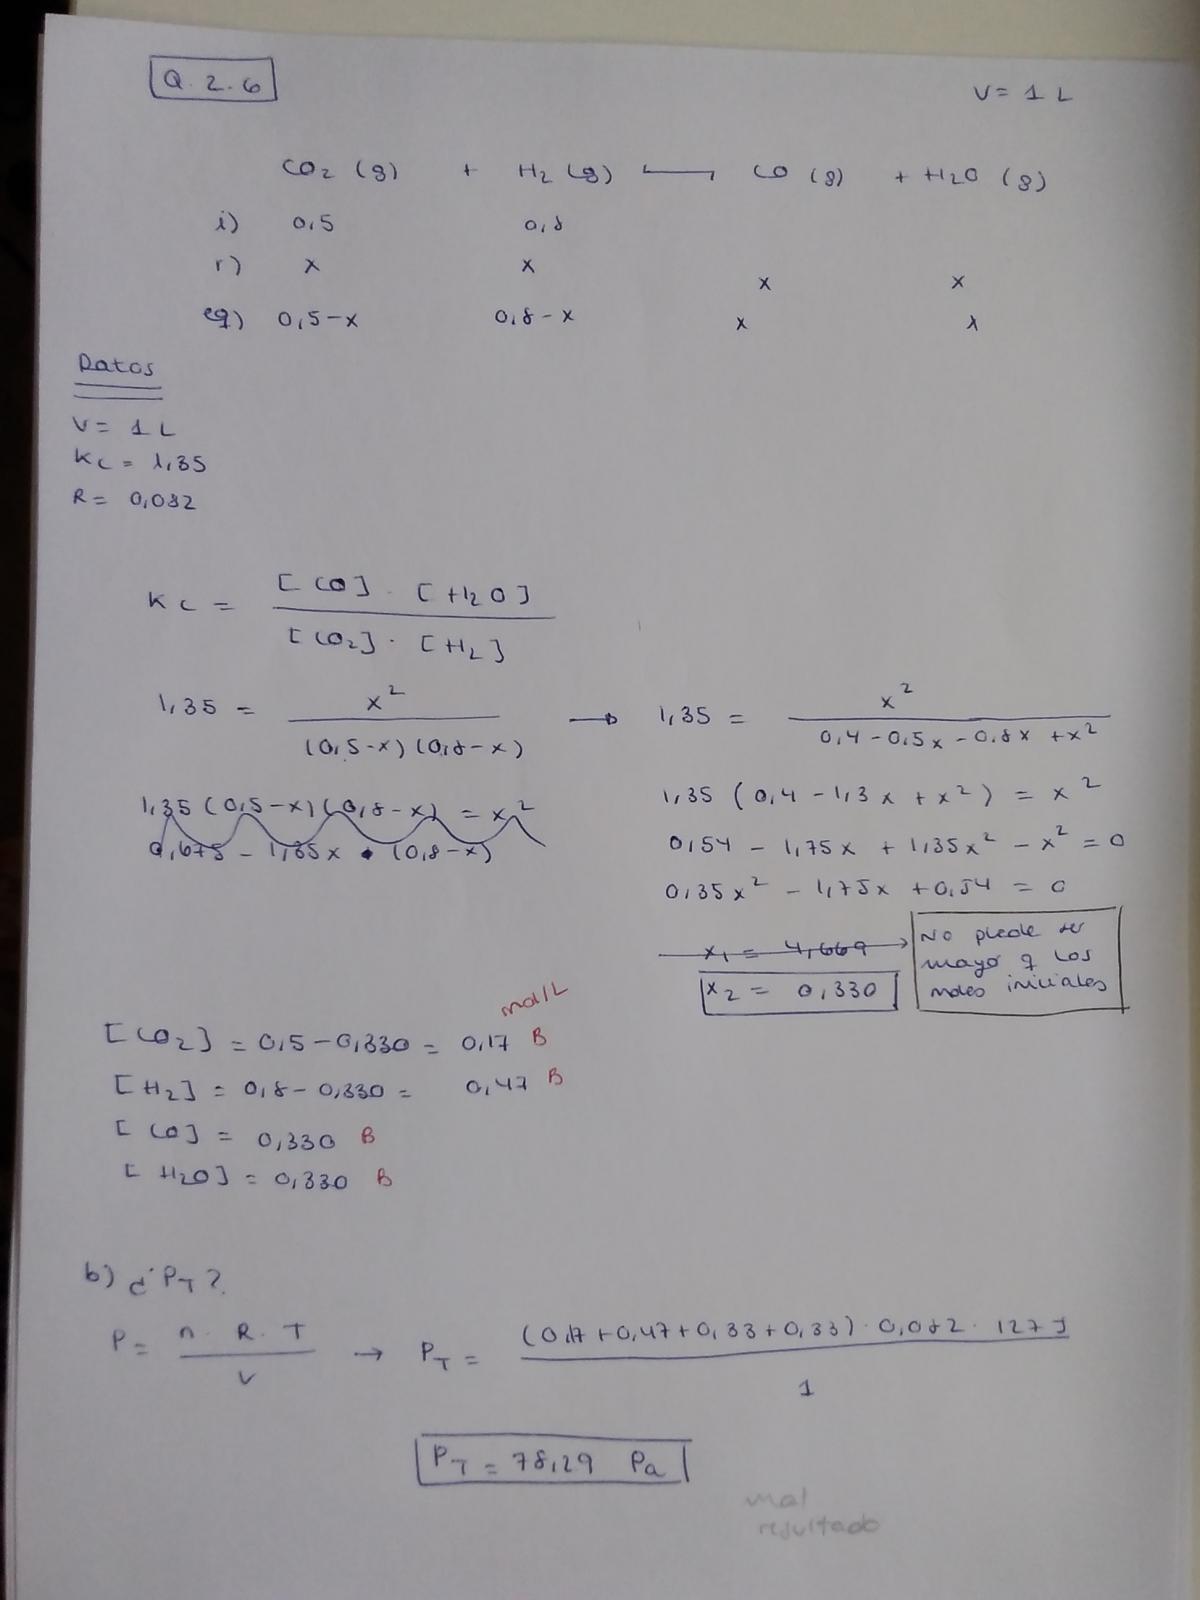 Q.2.6
V = 1 L
CO2 (g) + H2 (g) ⟷ CO (g) + H2O (g)
i) 0,5 0,8
r) x x x x
eq) 0,5-x 0,8-x x x
Datos
V = 1 L
Kc = 1,35
R = 0,082
Kc = [CO] · [H2O] / [CO2] · [H2]
1,35 = x² / (0,5-x)(0,8-x) → 1,35 = x² / 0,4 - 0,5x - 0,8x + x²
1,35 (0,5-x)(0,8-x) = x²
0,675 - 1,35x · (0,8-x)
1,35 (0,4 - 1,3x + x²) = x²
0,54 - 1,75x + 1,35x² - x² = 0
0,35x² - 1,75x + 0,54 = 0
x1 = 4,669 → No puede ser
mayor q los
moles iniciales
x2 = 0,330
mol/L
[CO2] = 0,5 - 0,330 = 0,17 B
[H2] = 0,8 - 0,330 = 0,47 B
[CO] = 0,330 B
[H2O] = 0,330 B
b) ¿PT?
P = n · R · T / V → PT = (0,17 + 0,47 + 0,33 + 0,33) · 0,082 · 127 / 1
PT = 78,29 Pa
mal
resultado